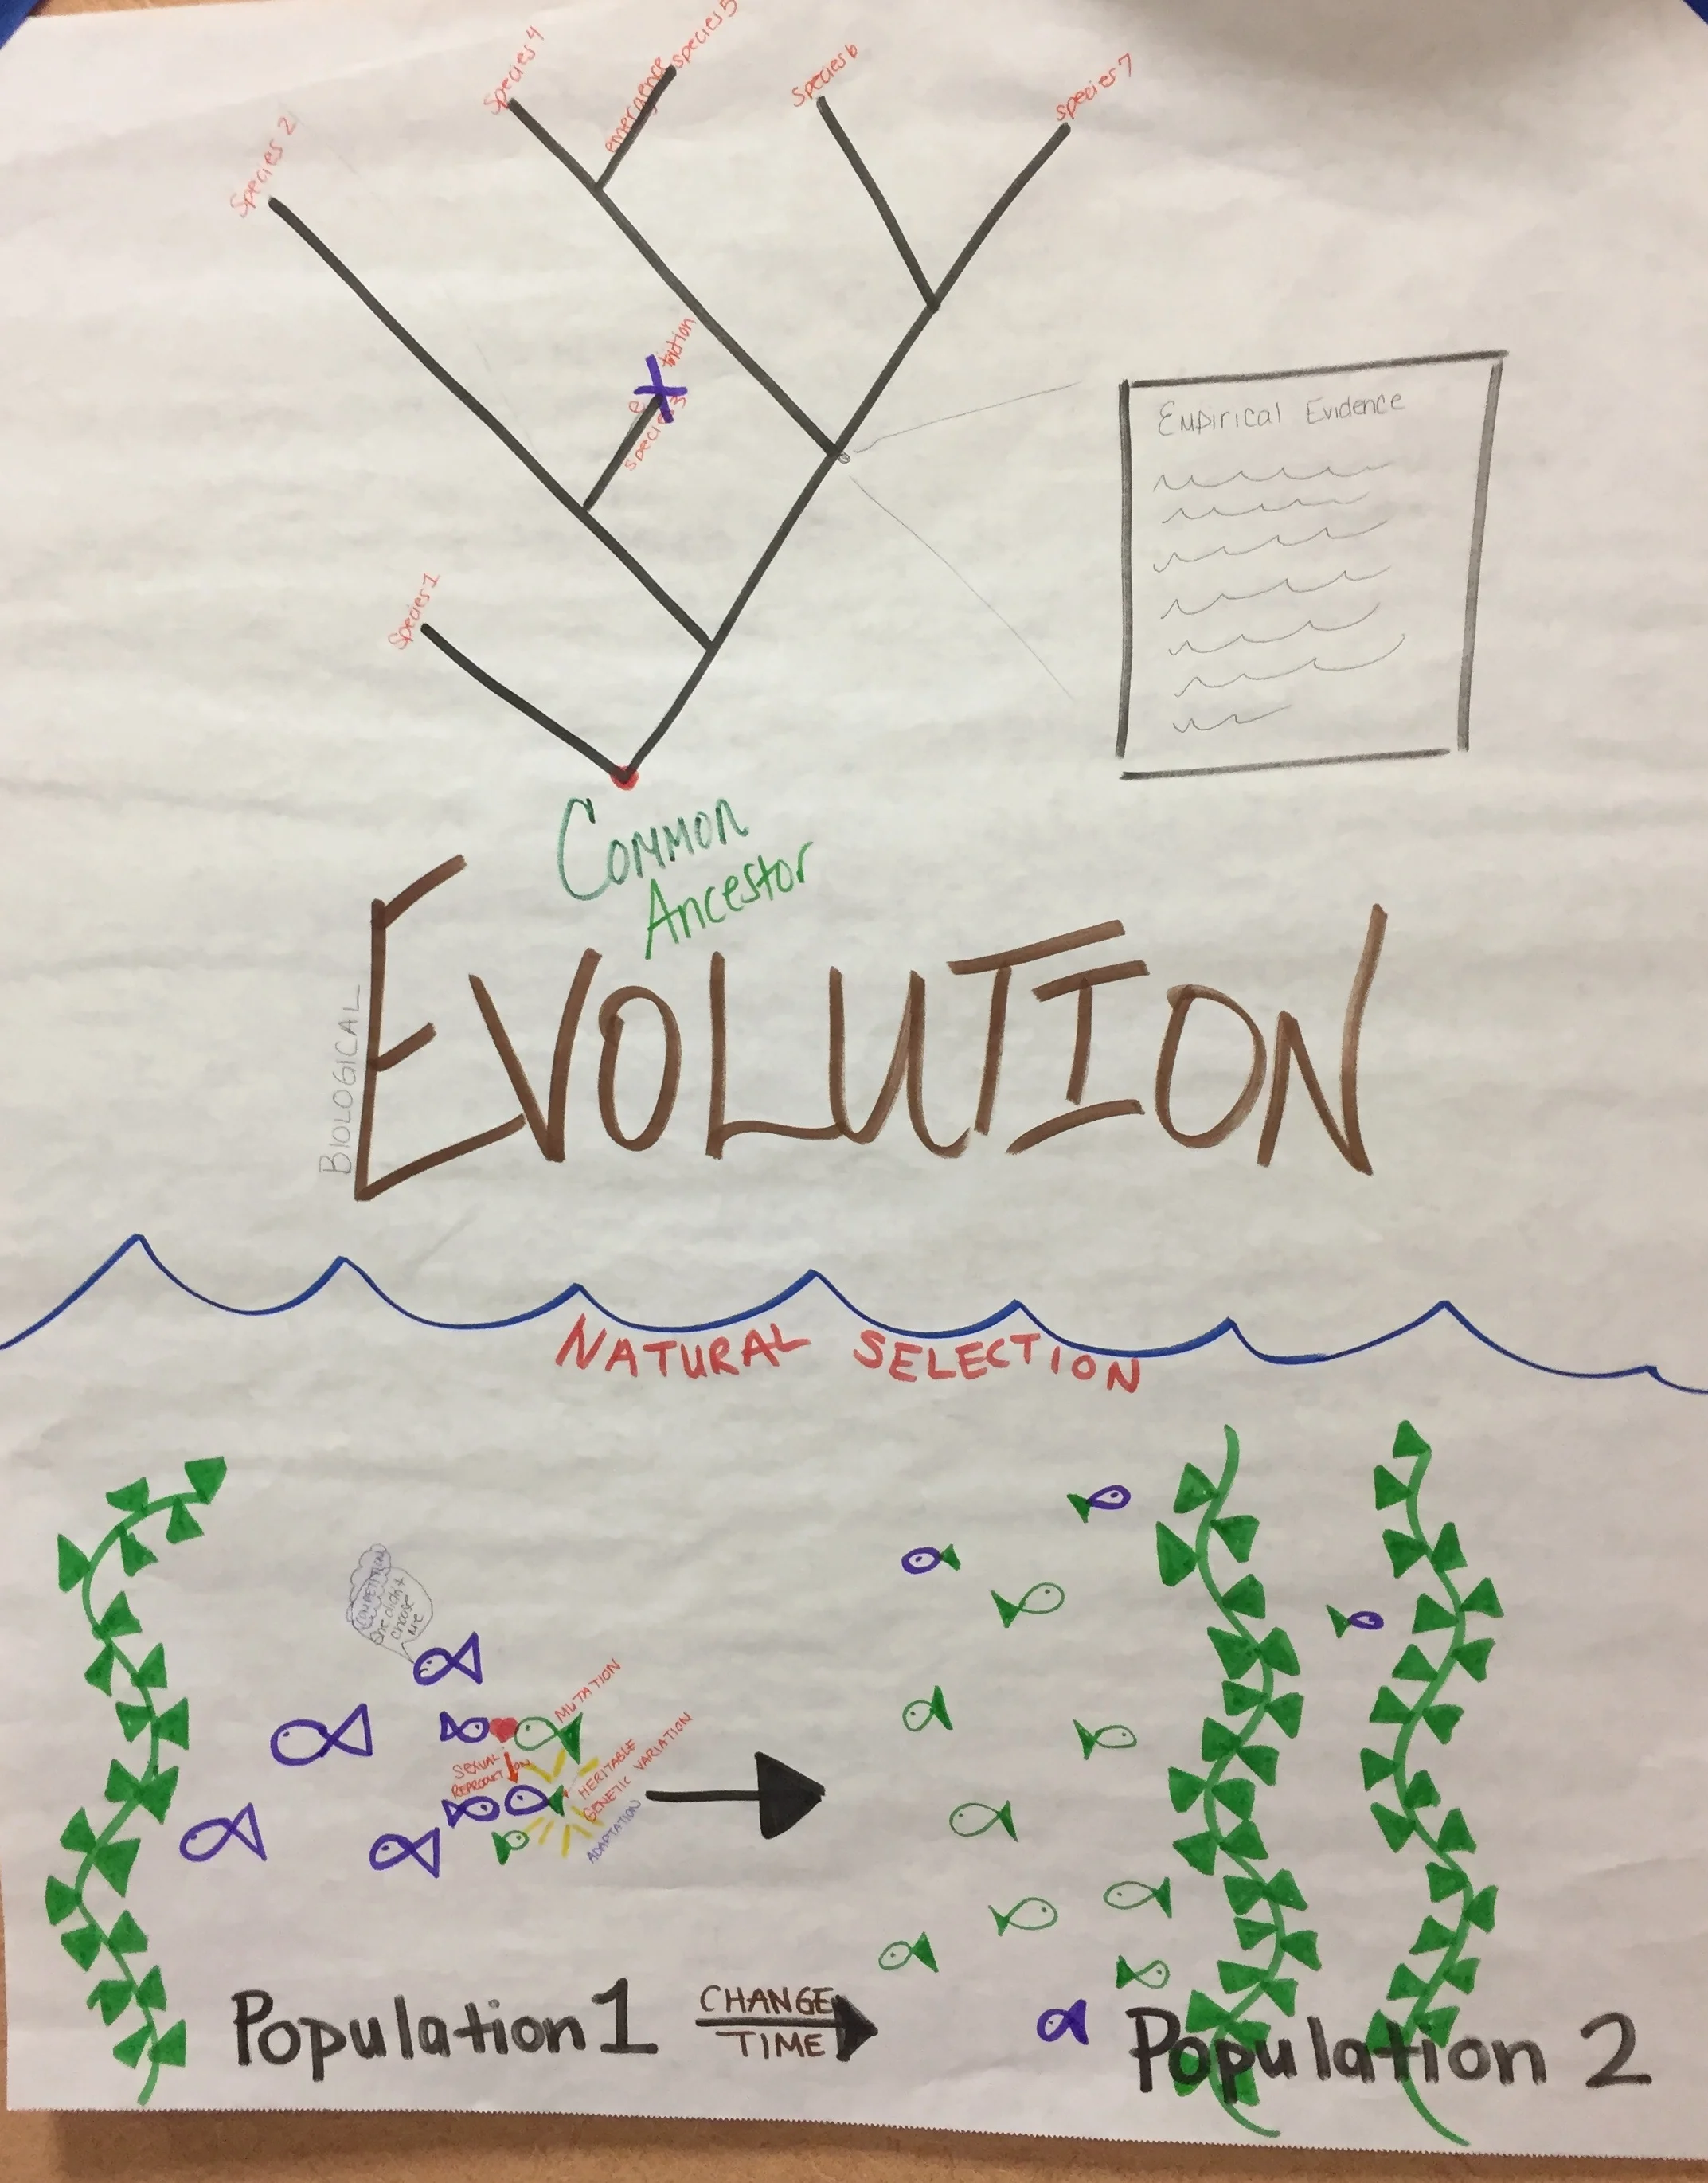 Species 2
Species 4
emergence
species 5
Species 6
species 7
e X tinction
species 3
Species 1
Empirical Evidence
Common
Ancestor
BIOLOGICAL
EVOLUTION
NATURAL SELECTION
COMPETITION
She didn't
choose
me
MUTATION
SEXUAL
REPRODUCTION
HERITABLE
GENETIC VARIATION
ADAPTATION
Population 1
CHANGE
TIME
Population 2